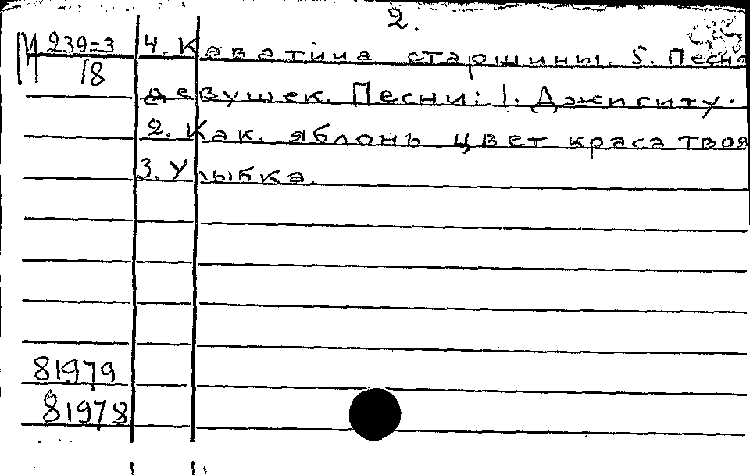 2.
М 239=3 4. Каватина старшины. 5. Песня
18
девушек. Песни: 1. Джигиту.
2. Как яблонь цвет краса твоя
3. Улыбка.
81979
81978